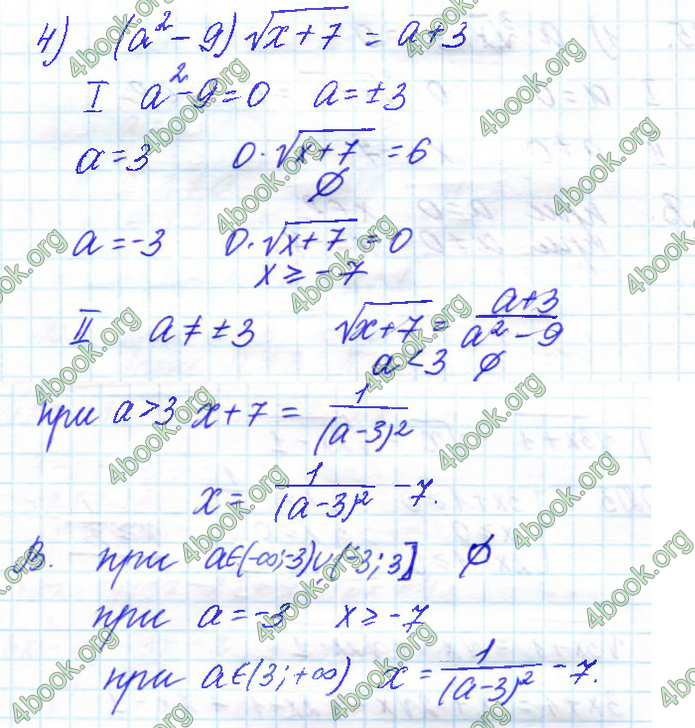 4) (a² - 9)√(x+7) = a+3
I a² - 9 = 0 a = ±3
a = 3 0·√(x+7) = 6
∅
a = -3 0·√(x+7) = 0
x ≥ -7
II a ≠ ±3 √(x+7) = (a+3)/(a² - 9)
a < 3 ∅
при a > 3 x + 7 = 1/(a-3)²
x = 1/(a-3)² - 7.
В. при a∈(-∞;-3)∪(-3;3] ∅
при a = -3 x ≥ -7
при a∈(3;+∞) x = 1/(a-3)² - 7.
4book.org